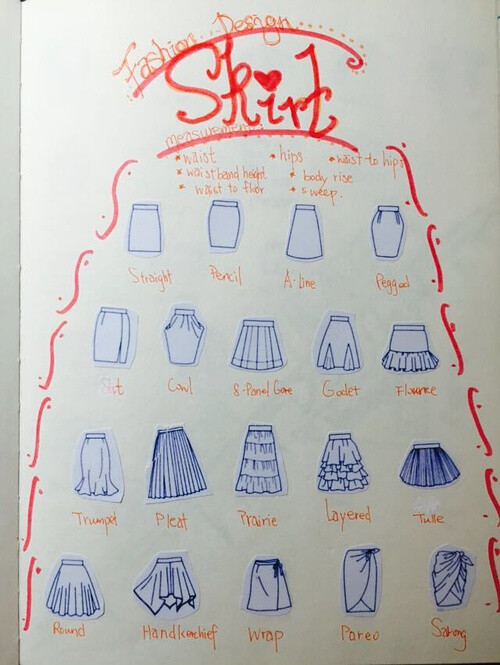 Fashion Design
Skirt
measurement:
* waist * hips * waist to hips
* waistband height * body rise
* waist to floor * sweep.
Straight Pencil A-line Pegged
Slit Cowl 8-Panel Gore Godet Flounce
Trumpet Pleat Prairie Layered Tulle
Round Handkerchief Wrap Pareo Sarong